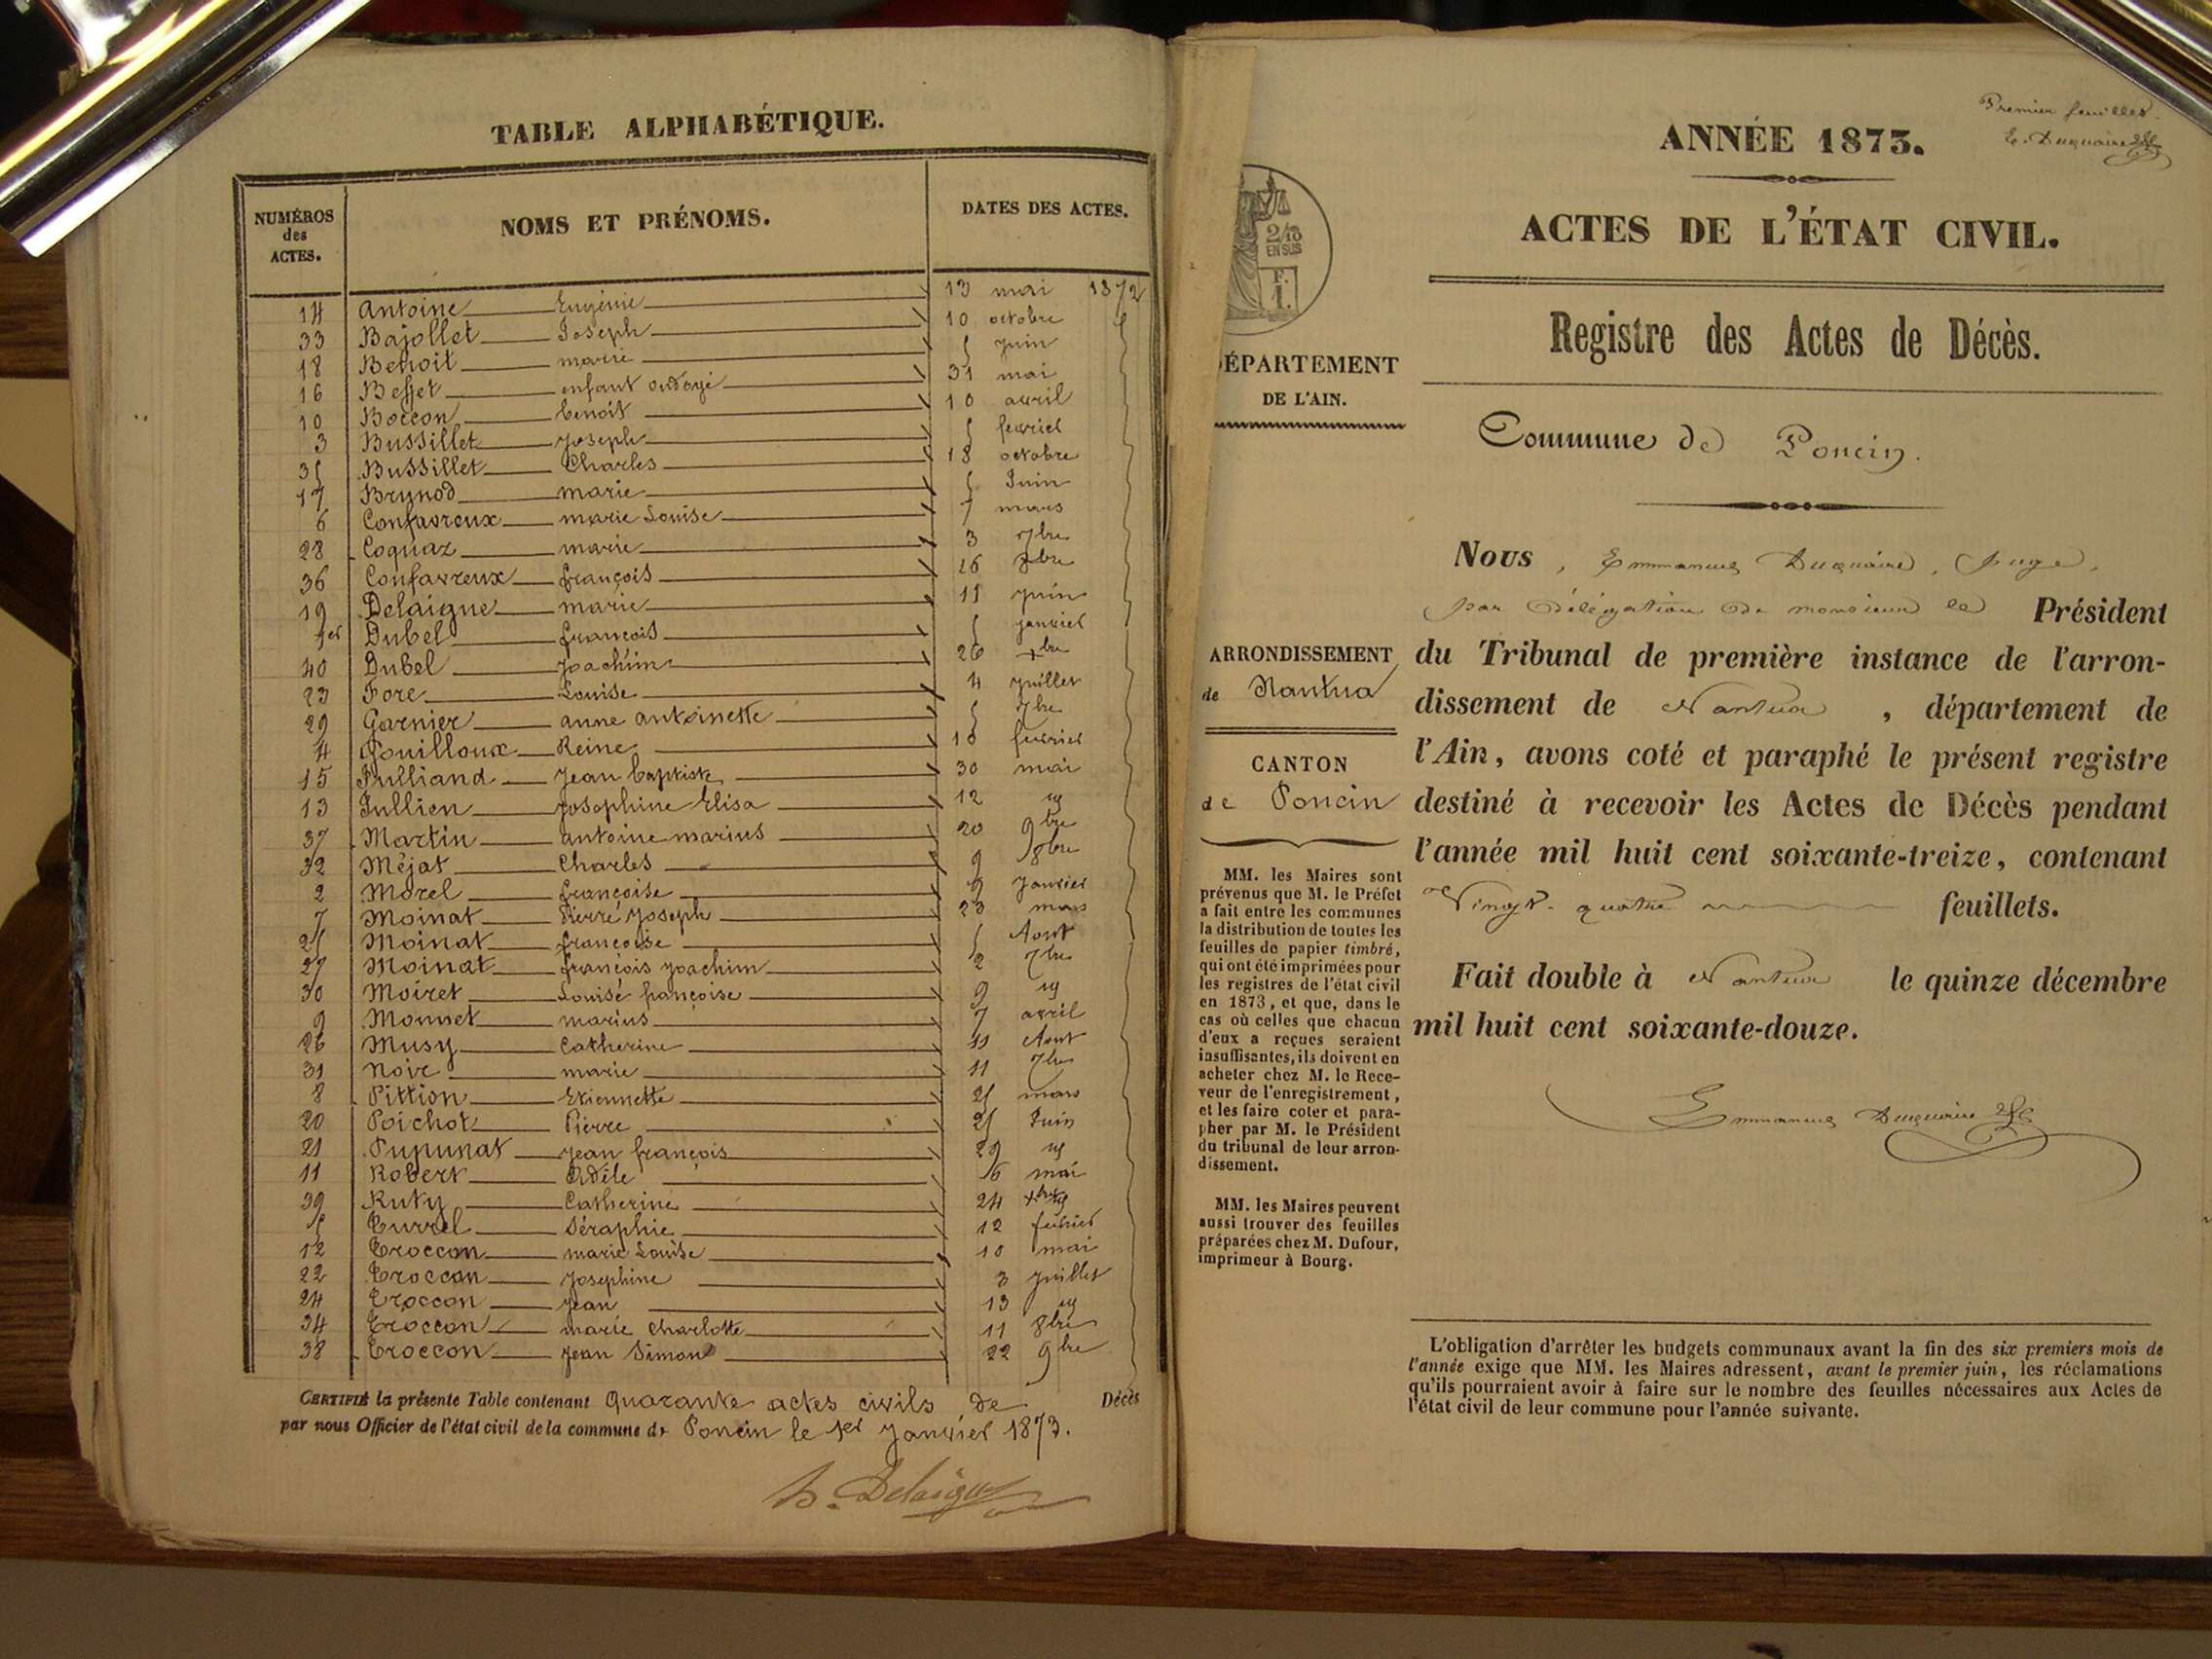 TABLE ALPHABÉTIQUE.
NUMÉROS des ACTES. NOMS ET PRÉNOMS. DATES DES ACTES.
14 Antoine Eugénie 13 mai 1872
33 Bajollet Joseph 10 octobre
18 Benoit marie 5 juin
16 Besset enfant ondoyé 31 mai
10 Boccon benoit 10 avril
3 Bussillet Joseph 5 fevrier
35 Bussillet Charles 18 octobre
17 Brunod marie 5 Juin
6 Confavreux marie Louise 7 mars
28 Coquaz marie 3 7bre
36 Confavreux françois 26 8bre
19 Delaigue marie 11 juin
1er Dubel françois 5 janvier
40 Dubel Joachim 26 xbre
23 Fore Louise 4 juillet
29 Garnier anne antoinette 5 7bre
4 Gouilloux Reine 10 fevrier
15 Julliand Jean baptiste 30 mai
13 Jullien Josephine Elisa 12
37 Martin antoine marius 20 9bre
32 Méjat Charles 9 8bre
2 Morel françoise 9 Janvier
7 Moinat Pierre Joseph 23 mars
25 Moinat françoise 5 Aout
27 Moinat françois Joachim 2 7bre
30 Moiret Louise françoise 9
9 Monnet marius 7 avril
26 Musy Catherine 11 Aout
31 Noir marie 11 7bre
8 Pittion Etiennette 25 mars
20 Poichot Pierre 25 Juin
21 Pupunat Jean françois 29
11 Robert Adèle 6 mai
39 Ruty Catherine 24 xbre
5 Turrel Séraphie 12 fevrier
12 Troccon marie Louise 10 mai
22 Troccon Josephine 3 Juillet
24 Troccon Jean 13
34 Troccon marie charlotte 11 8bre
38 Troccon Jean Simon 22 9bre
CERTIFIÉ la présente Table contenant Quarante actes civils de Décès
par nous Officier de l'état civil de la commune de Poncin le 1er Janvier 1873.
Delaigue
Premier feuillet.
E. Duquaire
ANNÉE 1873.
ACTES DE L'ÉTAT CIVIL.
Registre des Actes de Décès.
2/10
EN SUS
F.
1.
ÉPARTEMENT
DE L'AIN.
Commune de Poncin.
ARRONDISSEMENT
de Nantua
CANTON
de Poncin
MM. les Maires sont
prévenus que M. le Préfet
a fait entre les communes
la distribution de toutes les
feuilles de papier timbré,
qui ont été imprimées pour
les registres de l'état civil
en 1873, et que, dans le
cas où celles que chacun
d'eux a reçues seraient
insuffisantes, ils doivent en
acheter chez M. le Rece-
veur de l'enregistrement,
et les faire coter et para-
pher par M. le Président
du tribunal de leur arron-
dissement.
MM. les Maires peuvent
aussi trouver des feuilles
préparées chez M. Dufour,
imprimeur à Bourg.
Nous, Emmanuel Duquaire, Juge,
par délégation de monsieur le Président
du Tribunal de première instance de l'arron-
dissement de Nantua, département de
l'Ain, avons coté et paraphé le présent registre
destiné à recevoir les Actes de Décès pendant
l'année mil huit cent soixante-treize, contenant
Vingt-quatre feuillets.
Fait double à Nantua le quinze décembre
mil huit cent soixante-douze.
Emmanuel Duquaire
L'obligation d'arrêter les budgets communaux avant la fin des six premiers mois de
l'année exige que MM. les Maires adressent, avant le premier juin, les réclamations
qu'ils pourraient avoir à faire sur le nombre des feuilles nécessaires aux Actes de
l'état civil de leur commune pour l'année suivante.